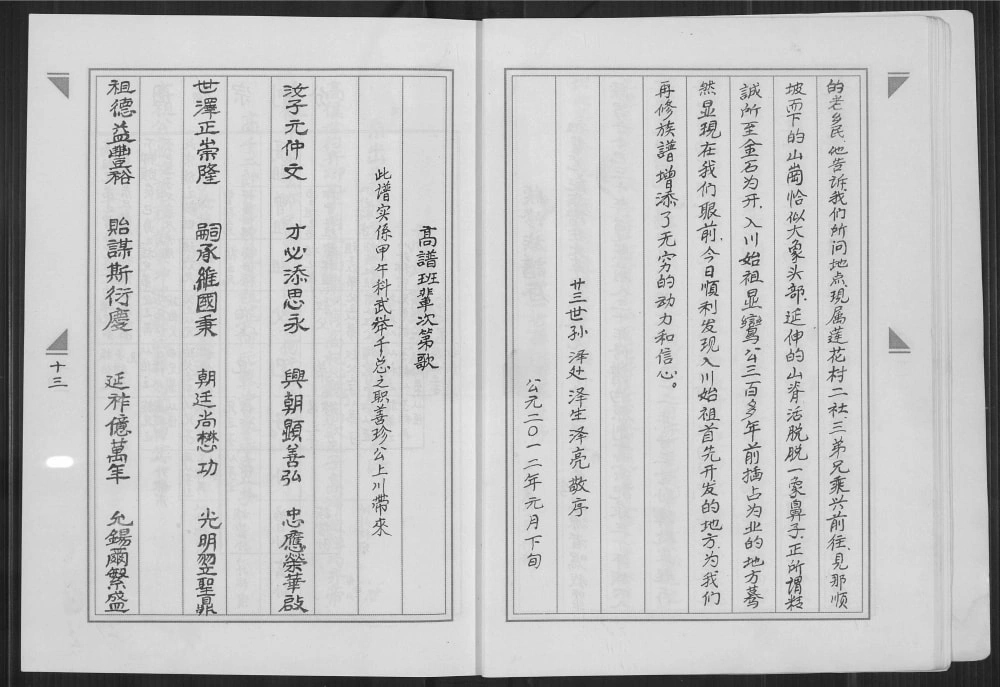 的老乡民，他告诉我们所问地点现属莲花村二社，三弟兄乘兴前往，见那顺
坡而下的山崗恰似大象头部，延伸的山脊活脱脱一象鼻子，正所謂精
誠所至金石为开，入川始祖显鸞公三百多年前插占为业的地方蓦
然显現在我们眼前，今日順利发现入川始祖首先开发的地方，为我们
再修族譜增添了无穷的动力和信心。
廿三世孙 泽处 泽生 泽亮 敬序
公元二〇一二年元月下旬
高譜班輩次第歌
此谱实係甲午科武举千总之职善珍公上川帶來
汝子元仲文 才必添思永 興朝顕善弘 忠應榮華啟
世澤正崇隆 嗣承維國秉 朝廷尚懋功 光明翌聖鼎
祖德益豐裕 貽謀斯衍慶 延祚億萬年 允錫爾繁盛
十三